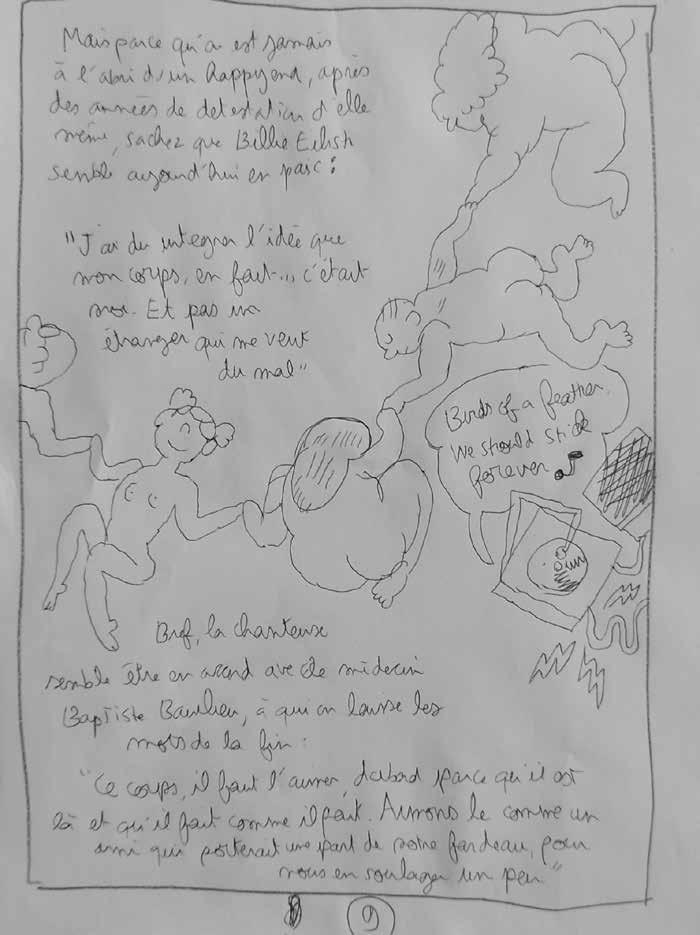 Mais parce qu'on est jamais
à l'abri d'un happy end, après
des années de detestation d'elle
même, sachez que Billie Eilish
semble aujourd'hui en paix :
"J'ai du integrer l'idée que
mon corps, en fait... c'était
moi. Et pas un
étranger qui me veut
du mal"
Birds of a feather,
We should stick
forever
Bref, la chanteuse
semble être en accord avec le médecin
Baptiste Baulieu, à qui on laisse les
mots de la fin :
"Ce corps, il faut l'aimer, d'abord parce qu'il est
là et qu'il fait comme il fait. Aimons le comme un
ami qui porterait une part de notre fardeau, pour
nous en soulager un peu"
9